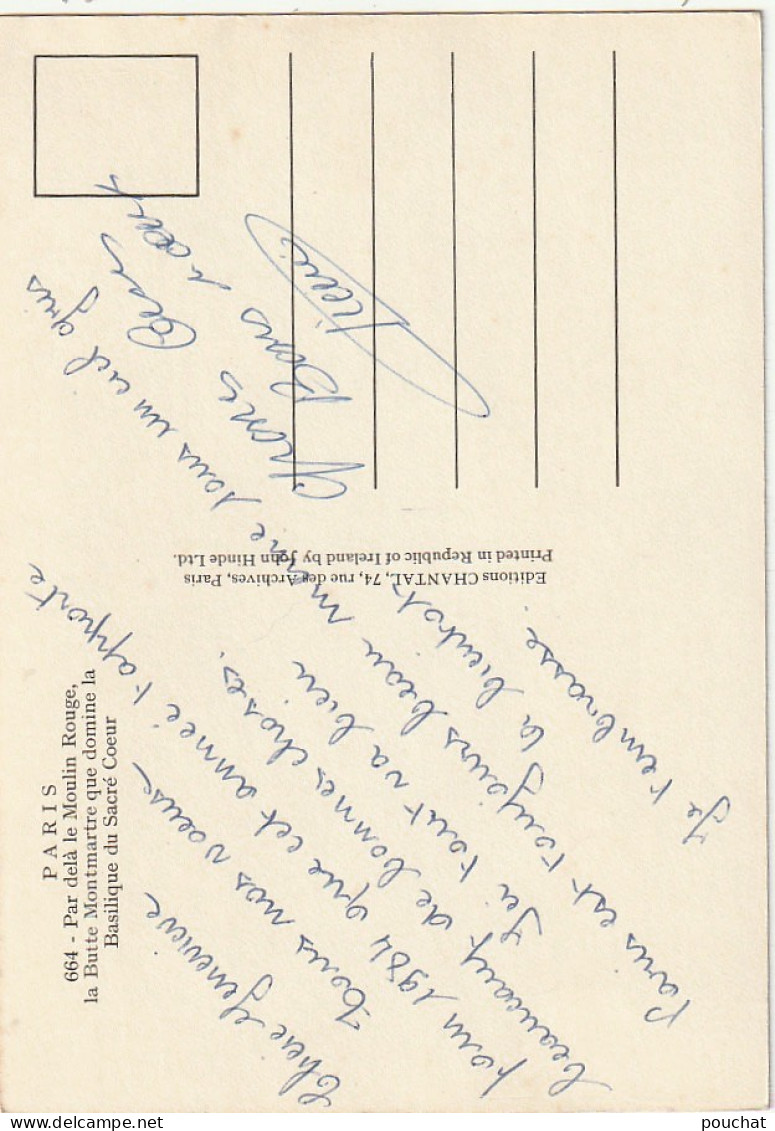 PARIS
664 - Par delà le Moulin Rouge,
la Butte Montmartre que domine la
Basilique du Sacré Coeur
Editions CHANTAL, 74, rue des Archives, Paris
Printed in Republic of Ireland by John Hinde Ltd.
Chère Geneviève
Tous nos voeux
pour 1984 que cet année t'apporte
beaucoup de bonnes choses.
Ici tout va bien
Paris est toujours beau même sous un ciel gris
à bientôt
Je t'embrasse.
Gros
Bons
pouchat